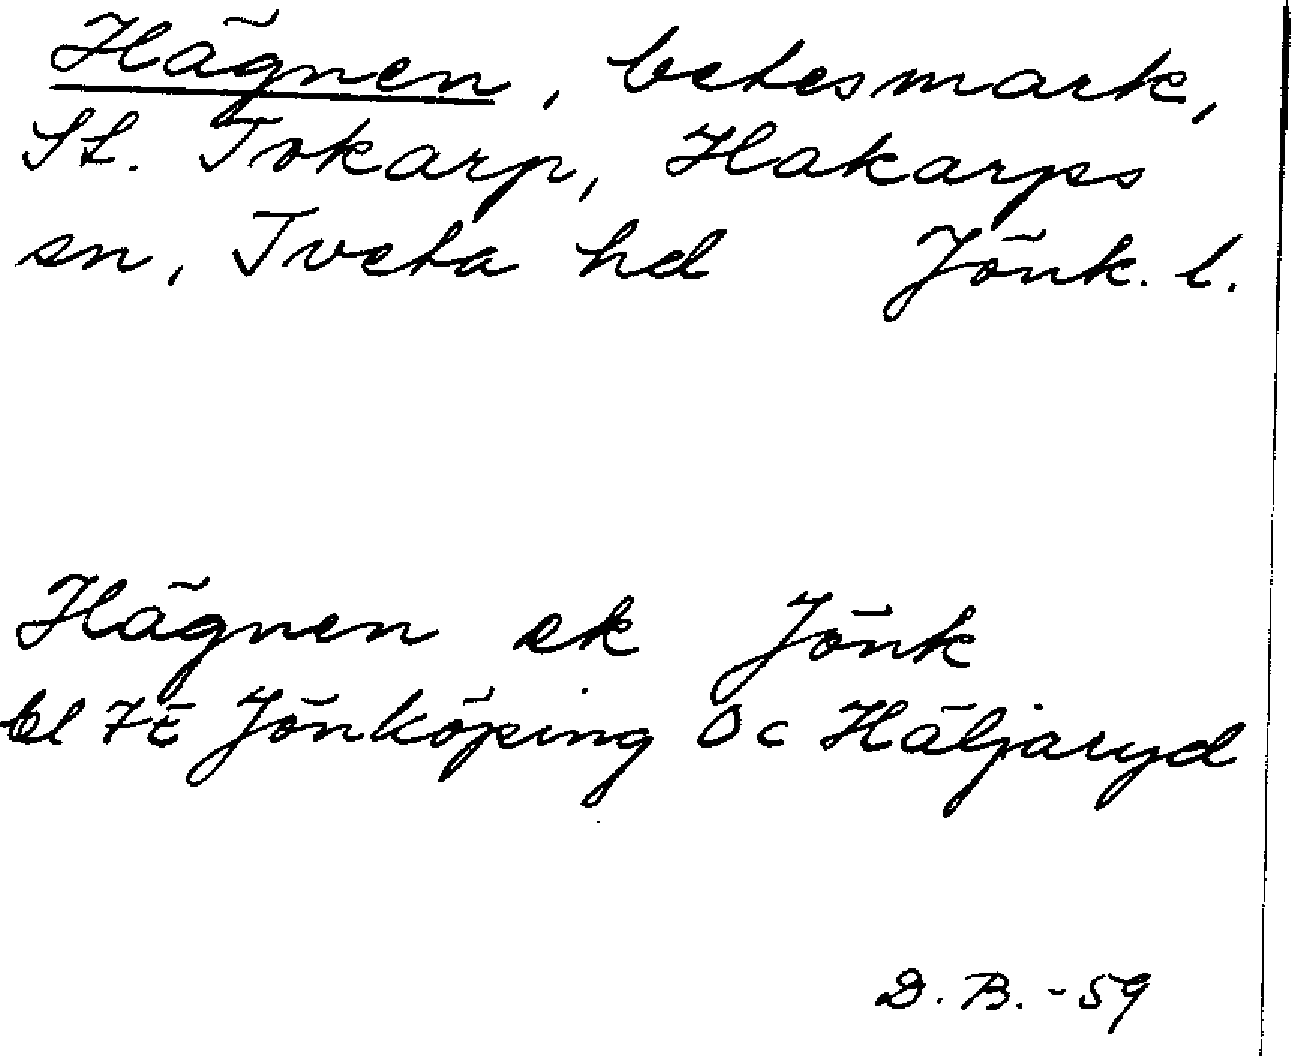 Hägnen, betesmark,
St. Tokarp, Hakarps
sn, Tveta hd Jönk. l.
Hägnen ek Jönk
bl 7E Jönköping Oc Häljaryd
D. B. - 59